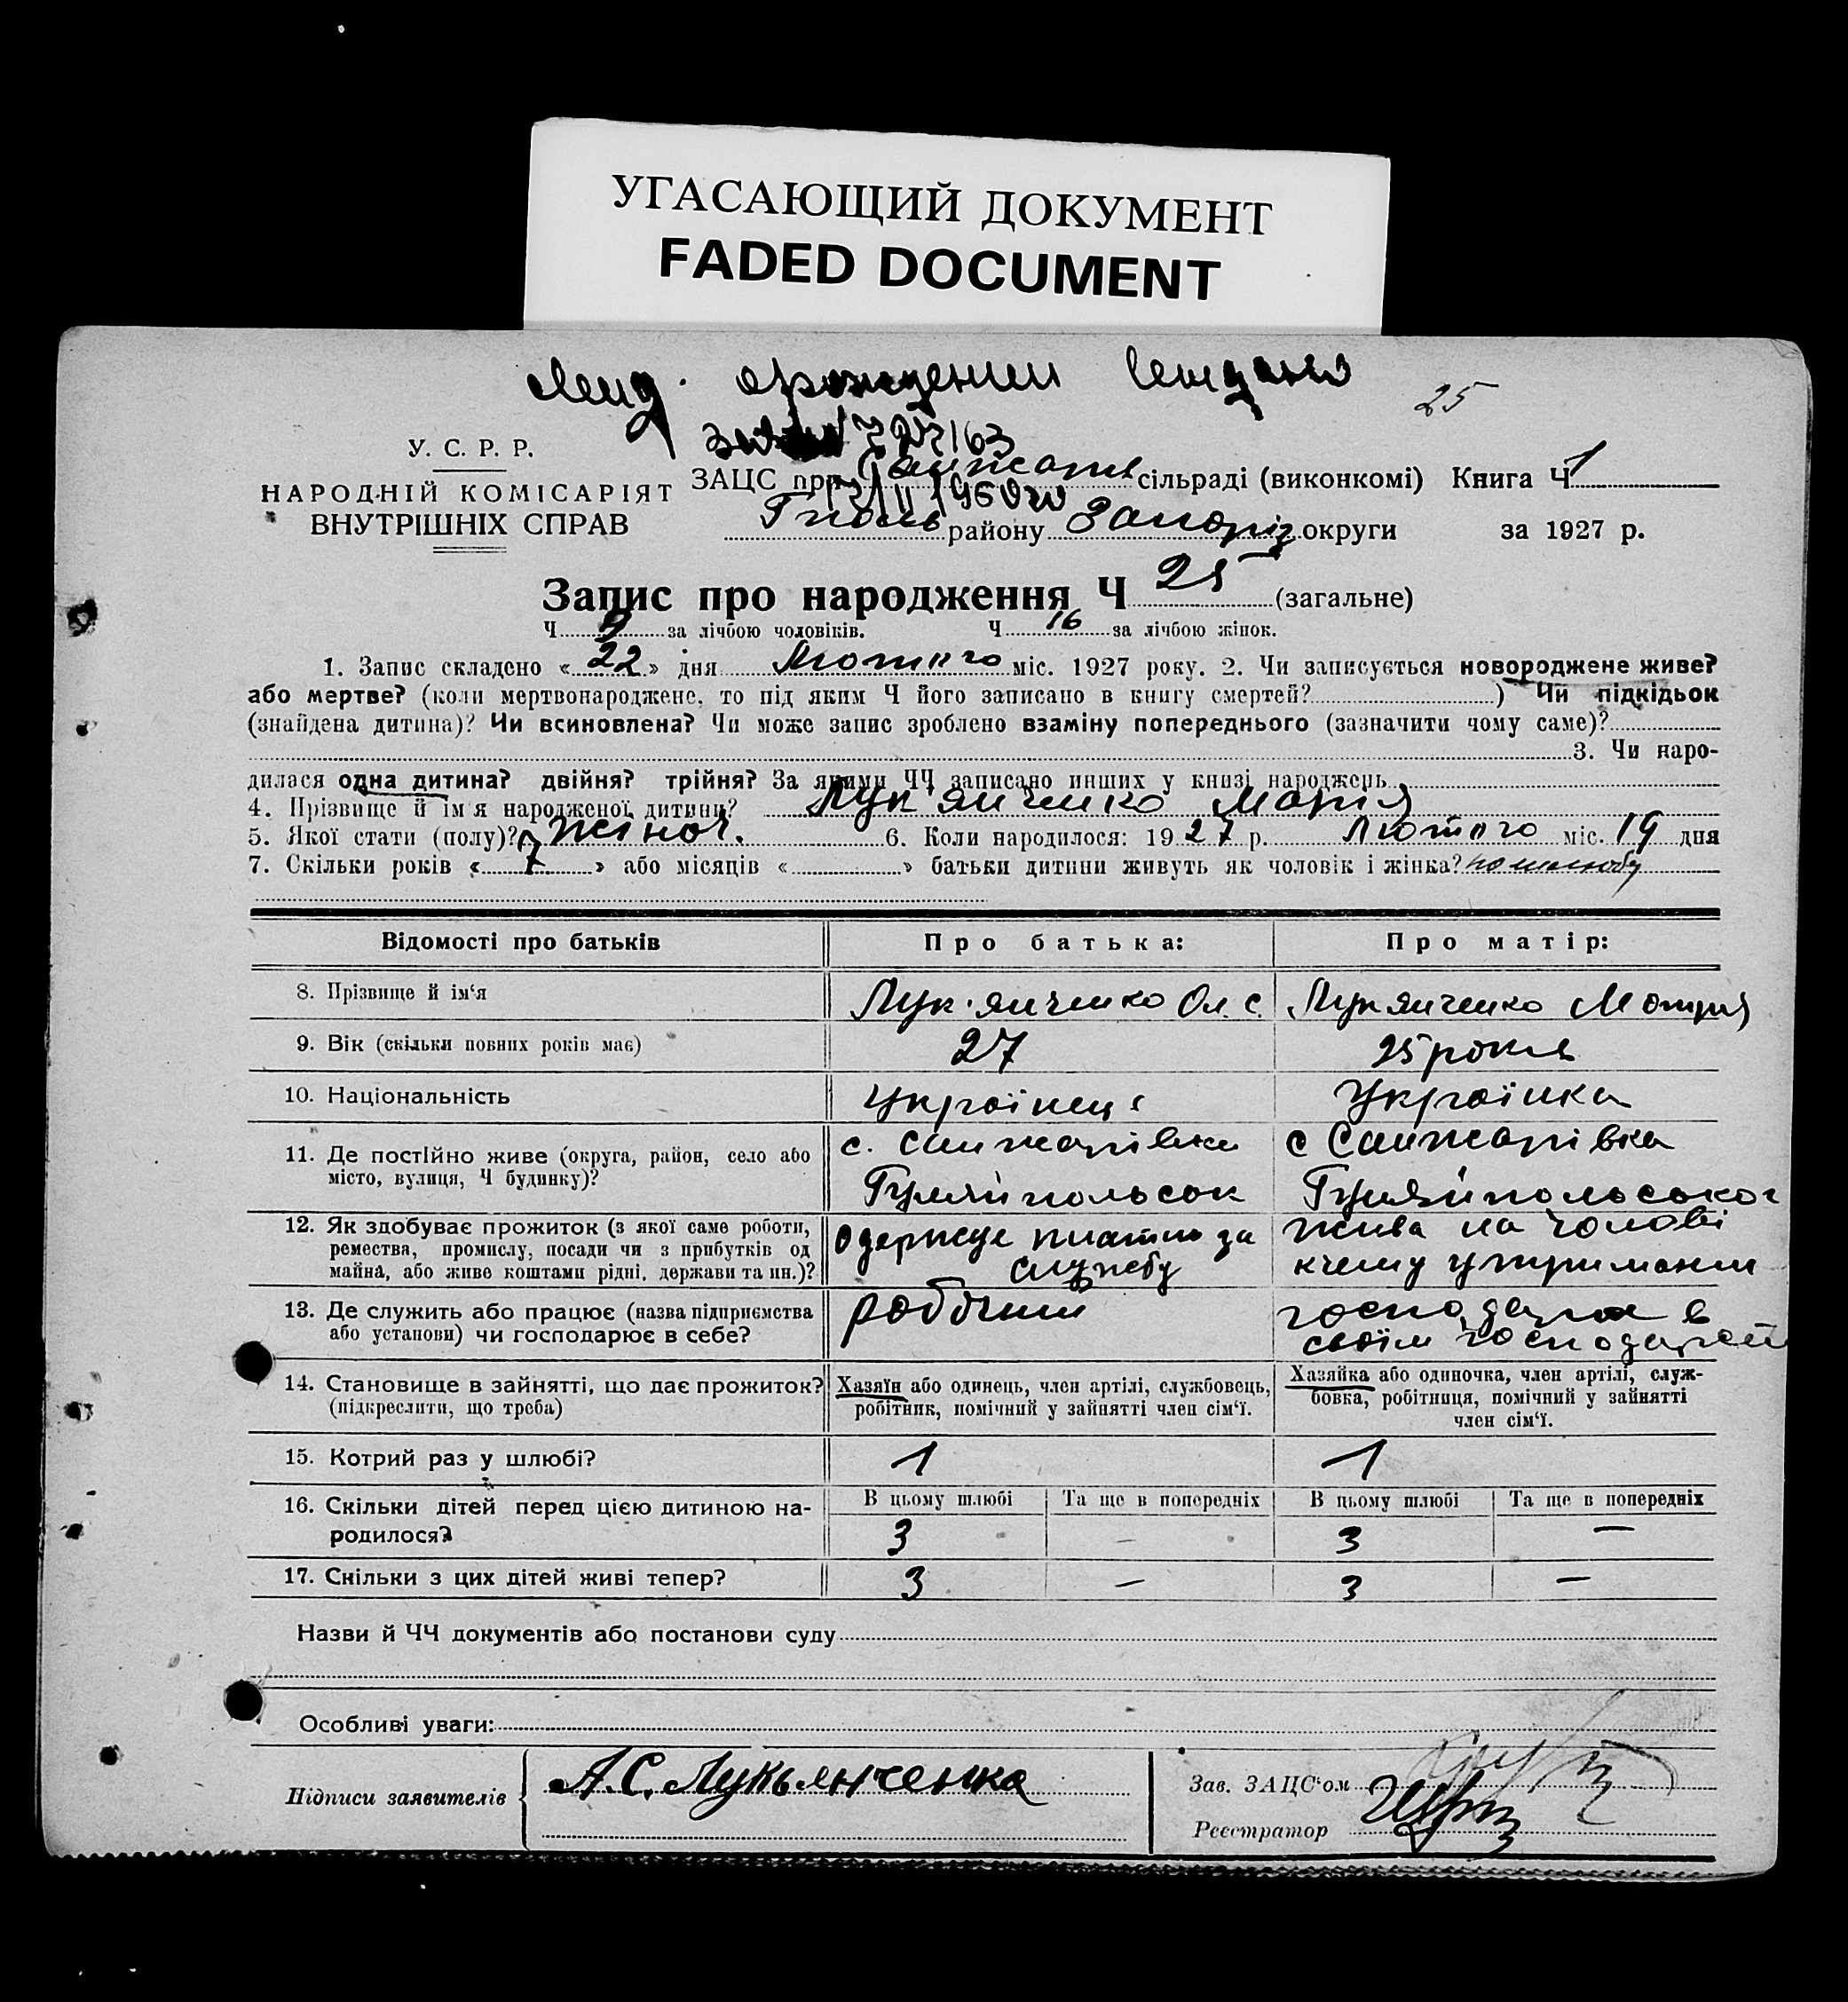 УГАСАЮЩИЙ ДОКУМЕНТ
FADED DOCUMENT
25
У. С. Р. Р.
НАРОДНІЙ КОМІСАРІЯТ
ВНУТРІШНІХ СПРАВ
ЗАЦС при Санжарів сільраді (виконкомі) Книга Ч 1
району Запоріз округи за 1927 р.
Запис про народження Ч 25 (загальне)
Ч 9 за лічбою чоловіків. Ч 16 за лічбою жінок.
1. Запис складено «22» дня Лютого міс. 1927 року. 2. Чи записується новороджене живе?
або мертве? (коли мертвонароджене, то під яким Ч його записано в книгу смертей? ) Чи підкідьок
(знайдена дитина)? Чи всиновлена? Чи може запис зроблено взаміну попереднього (зазначити чому саме)?
3. Чи наро-
дилася одна дитина? двійня? трійня? За якими ЧЧ записано инших у книзі народжень
4. Прізвище й ім'я народженої дитини? Лук'янченко Марія
5. Якої стати (полу)? жіноч. 6. Коли народилося: 1927 р. Лютого міс. 19 дня
7. Скільки років «7» або місяців « » батьки дитини живуть як чоловік і жінка?
Відомості про батьків Про батька: Про матір:
8. Прізвище й ім'я Лук'янченко Ол. С. Лук'янченко Мотря
9. Вік (скільки повних років має) 27 25 років
10. Національність Українець Українка
11. Де постійно живе (округа, район, село або місто, вулиця, Ч будинку)?
с. Санжарівка
Гуляйпольськ
с Санжарівка
Гуляйпольського
12. Як здобуває прожиток (з якої саме роботи,
ремества, промислу, посади чи з прибутків од
майна, або живе коштами рідні, держави та ин.)?
одержує платню за
службу
жива на чолові
кчему утриманні
13. Де служить або працює (назва підприємства
або установи) чи господарює в себе?
робочий
господарює в
своїм господарстві
14. Становище в зайнятті, що дає прожиток?
(підкреслити, що треба)
Хазяїн або одинець, член артілі, службовець,
робітник, помічний у зайнятті член сім'ї.
Хазяйка або одиночка, член артілі, служ-
бовка, робітниця, помічний у зайнятті
член сім'ї.
15. Котрий раз у шлюбі? 1 1
16. Скільки дітей перед цією дитиною на-
родилося?
В цьому шлюбі Та ще в попередніх В цьому шлюбі Та ще в попередніх
3 – 3 –
17. Скільки з цих дітей живі тепер? 3 – 3 –
Назви й ЧЧ документів або постанови суду
Особливі уваги:
Підписи заявителів А. С. Лукьянченка
Зав. ЗАЦС'ом
Реєстратор